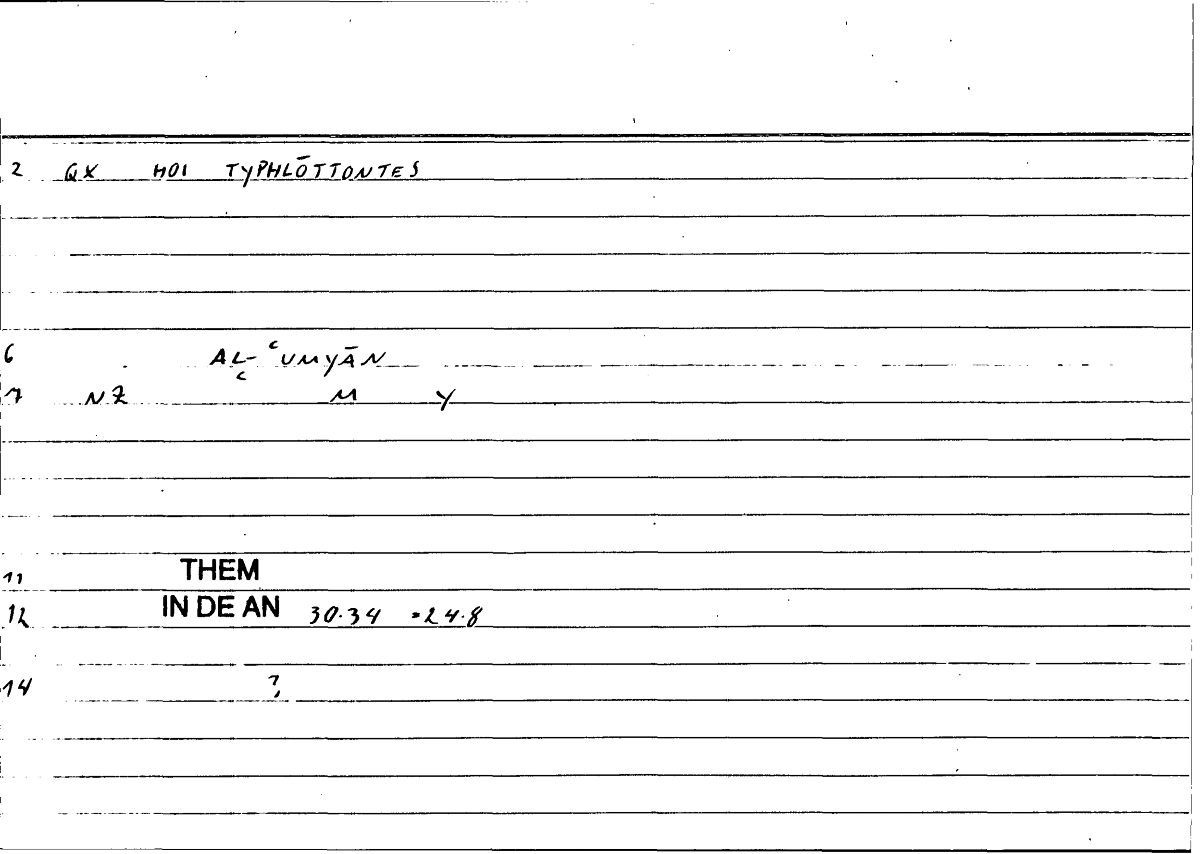 2 GX HOI TYPHLŌTTONTES
6 AL-ʿUMYĀN
7 NZ ʿ M Y
11 THEM
12 IN DE AN 30.34 =24.8
14 ?